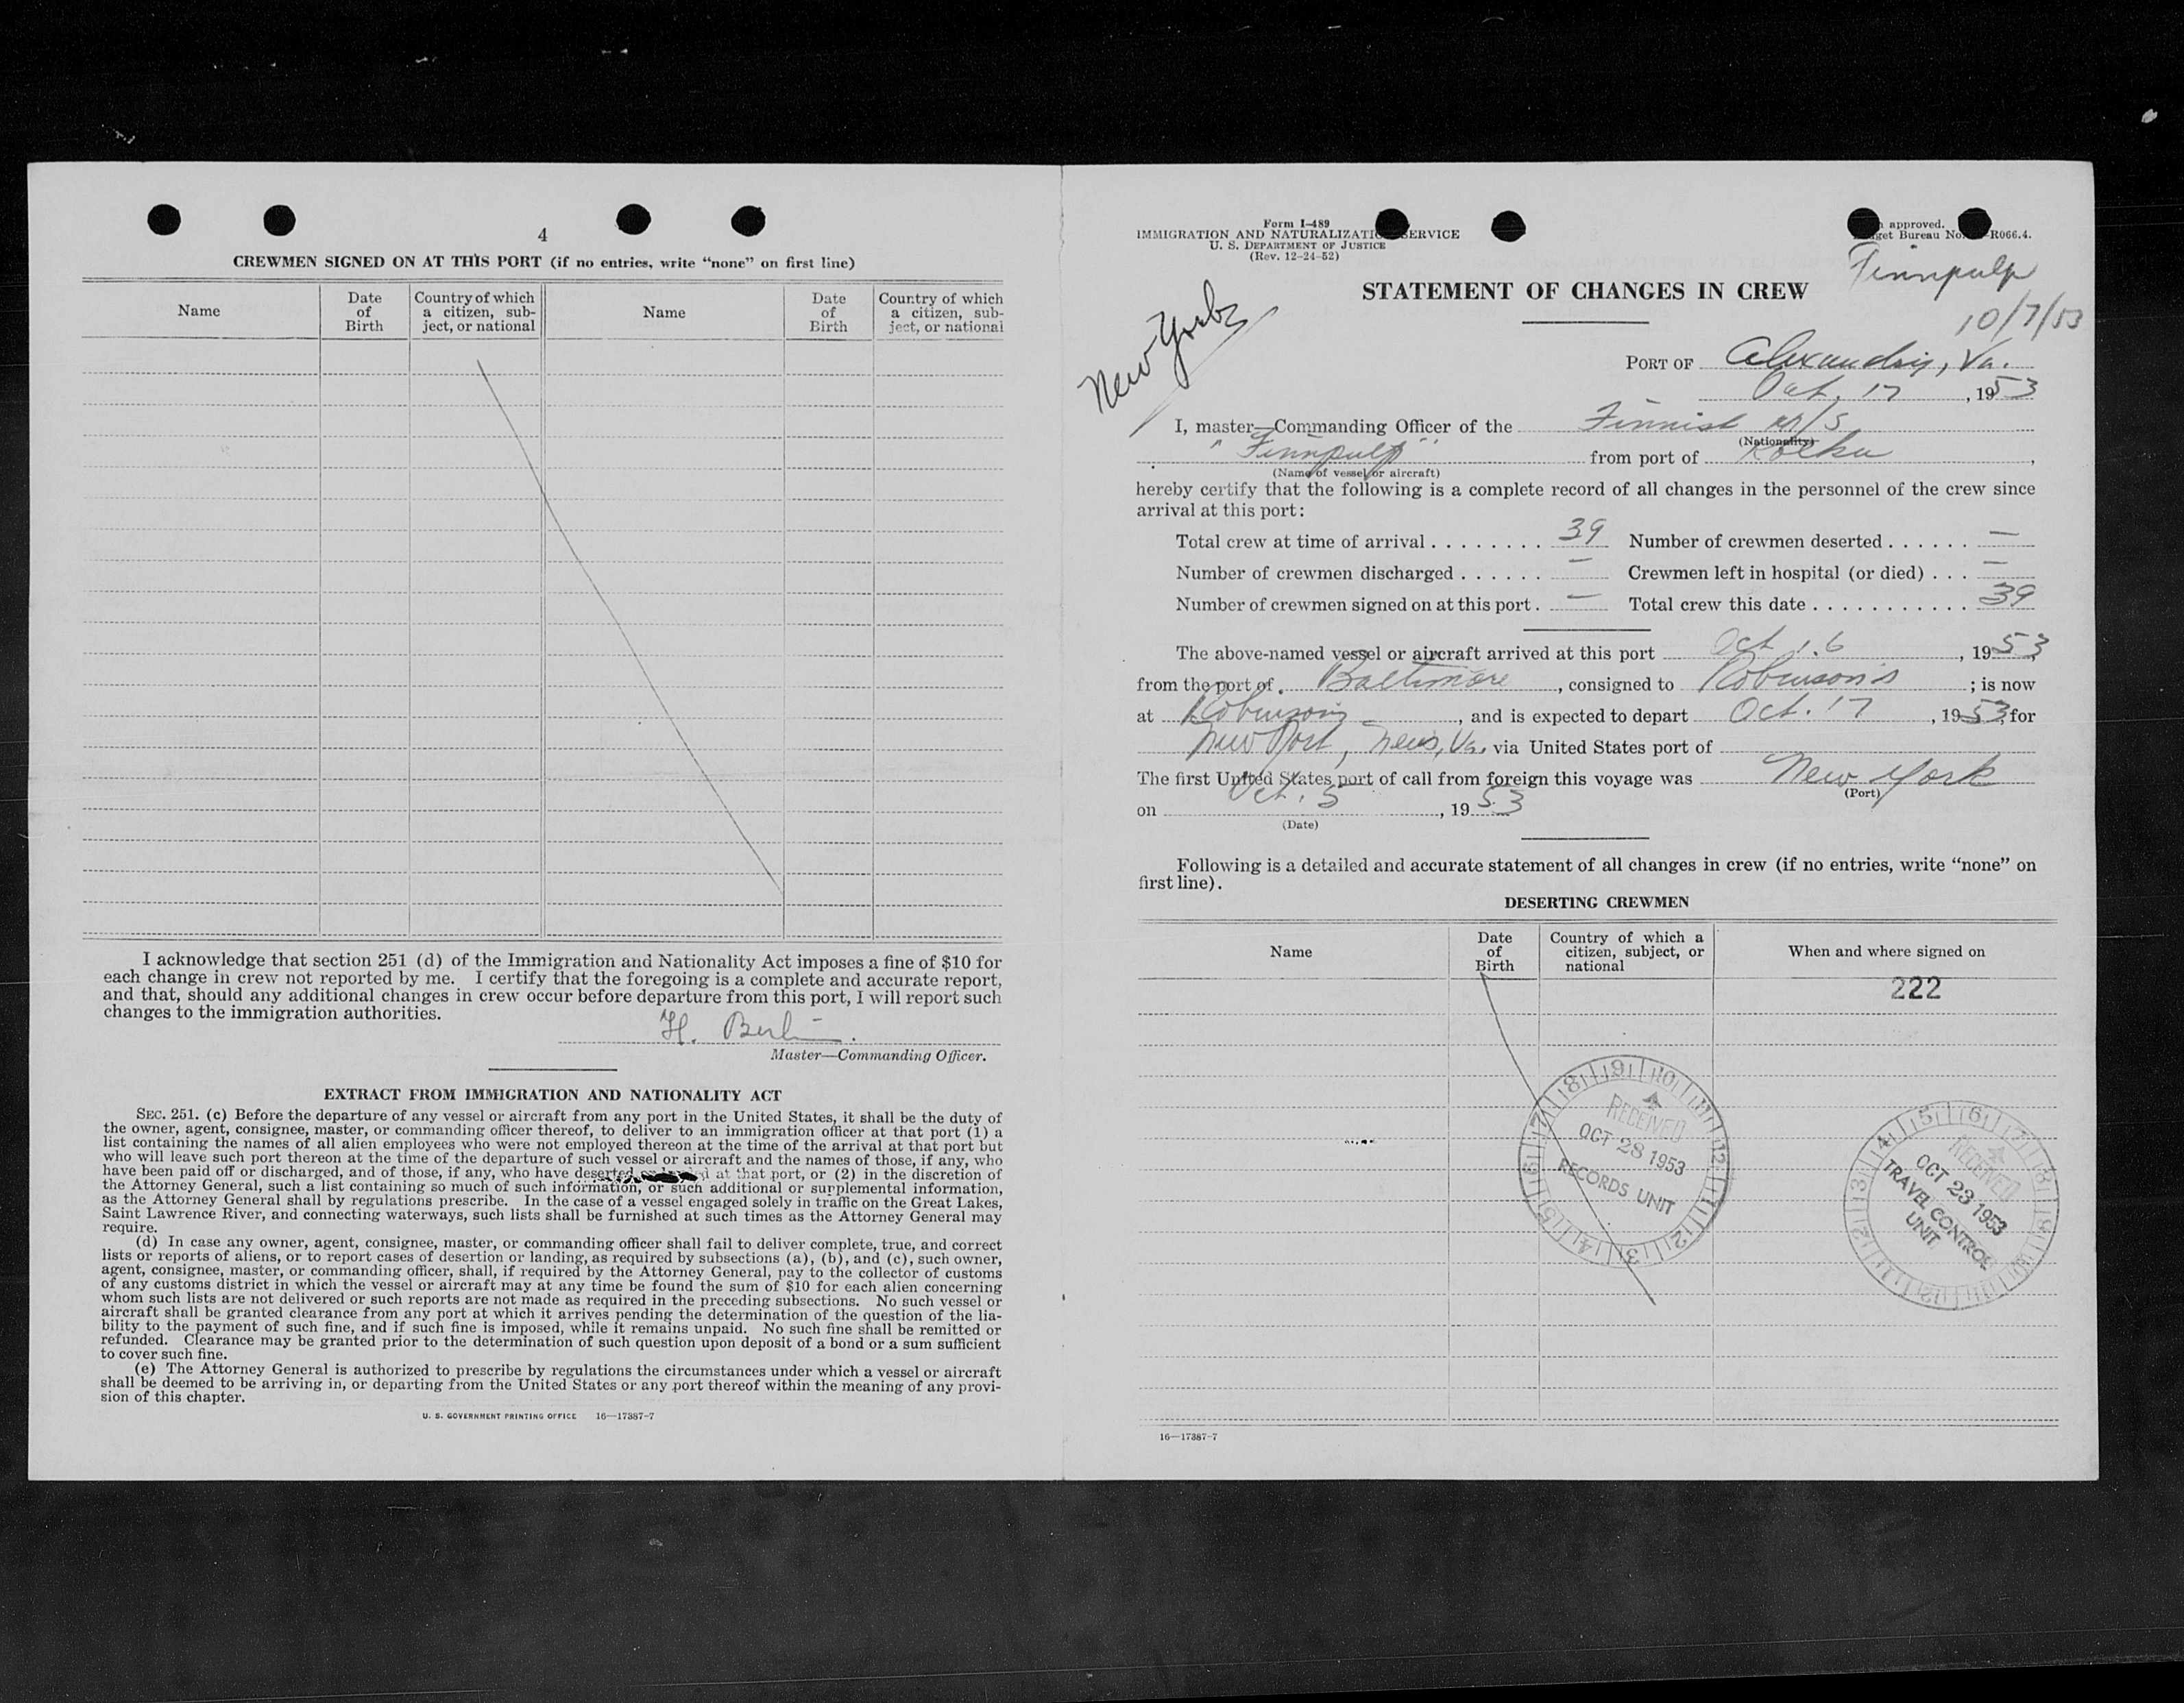 4
CREWMEN SIGNED ON AT THIS PORT (if no entries, write "none" on first line)
Name
Date of Birth
Country of which a citizen, subject, or national
Name
Date of Birth
Country of which a citizen, subject, or national
I acknowledge that section 251 (d) of the Immigration and Nationality Act imposes a fine of $10 for
each change in crew not reported by me. I certify that the foregoing is a complete and accurate report,
and that, should any additional changes in crew occur before departure from this port, I will report such
changes to the immigration authorities.
H. Berlin.
Master—Commanding Officer.
EXTRACT FROM IMMIGRATION AND NATIONALITY ACT
SEC. 251. (c) Before the departure of any vessel or aircraft from any port in the United States, it shall be the duty of
the owner, agent, consignee, master, or commanding officer thereof, to deliver to an immigration officer at that port (1) a
list containing the names of all alien employees who were not employed thereon at the time of the arrival at that port but
who will leave such port thereon at the time of the departure of such vessel or aircraft and the names of those, if any, who
have been paid off or discharged, and of those, if any, who have deserted at that port, or (2) in the discretion of
the Attorney General, such a list containing so much of such information, or such additional or supplemental information,
as the Attorney General shall by regulations prescribe. In the case of a vessel engaged solely in traffic on the Great Lakes,
Saint Lawrence River, and connecting waterways, such lists shall be furnished at such times as the Attorney General may
require.
(d) In case any owner, agent, consignee, master, or commanding officer shall fail to deliver complete, true, and correct
lists or reports of aliens, or to report cases of desertion or landing, as required by subsections (a), (b), and (c), such owner,
agent, consignee, master, or commanding officer, shall, if required by the Attorney General, pay to the collector of customs
of any customs district in which the vessel or aircraft may at any time be found the sum of $10 for each alien concerning
whom such lists are not delivered or such reports are not made as required in the preceding subsections. No such vessel or
aircraft shall be granted clearance from any port at which it arrives pending the determination of the question of the lia-
bility to the payment of such fine, and if such fine is imposed, while it remains unpaid. No such fine shall be remitted or
refunded. Clearance may be granted prior to the determination of such question upon deposit of a bond or a sum sufficient
to cover such fine.
(e) The Attorney General is authorized to prescribe by regulations the circumstances under which a vessel or aircraft
shall be deemed to be arriving in, or departing from the United States or any port thereof within the meaning of any provi-
sion of this chapter.
U. S. GOVERNMENT PRINTING OFFICE 16—17387-7
Form I-489
IMMIGRATION AND NATURALIZATIO SERVICE
U. S. DEPARTMENT OF JUSTICE
(Rev. 12-24-52)
approved.
get Bureau No. -R066.4.
Finnpulp
10/7/53
New York
STATEMENT OF CHANGES IN CREW
PORT OF Alexandria, Va.
Oct. 17, 1953
I, master—Commanding Officer of the Finnish M/S
(Nationality)
"Finnpulp" from port of Kotka,
(Name of vessel or aircraft)
hereby certify that the following is a complete record of all changes in the personnel of the crew since
arrival at this port:
Total crew at time of arrival . . . . . . . . 39 Number of crewmen deserted . . . . . . —
Number of crewmen discharged . . . . . . — Crewmen left in hospital (or died) . . . —
Number of crewmen signed on at this port . — Total crew this date . . . . . . . . . . . . 39
The above-named vessel or aircraft arrived at this port Oct 16, 1953,
from the port of Baltimore, consigned to Robinson's; is now
at Robinson, and is expected to depart Oct. 17, 1953, for
New Port, News, Va. via United States port of
The first United States port of call from foreign this voyage was New York
(Port)
on Oct. 5, 1953
(Date)
Following is a detailed and accurate statement of all changes in crew (if no entries, write "none" on
first line).
DESERTING CREWMEN
Name
Date of Birth
Country of which a citizen, subject, or national
When and where signed on
222
RECEIVED
OCT 28 1953
RECORDS UNIT
RECEIVED
OCT 23 1953
TRAVEL CONTROL
UNIT
16—17387-7